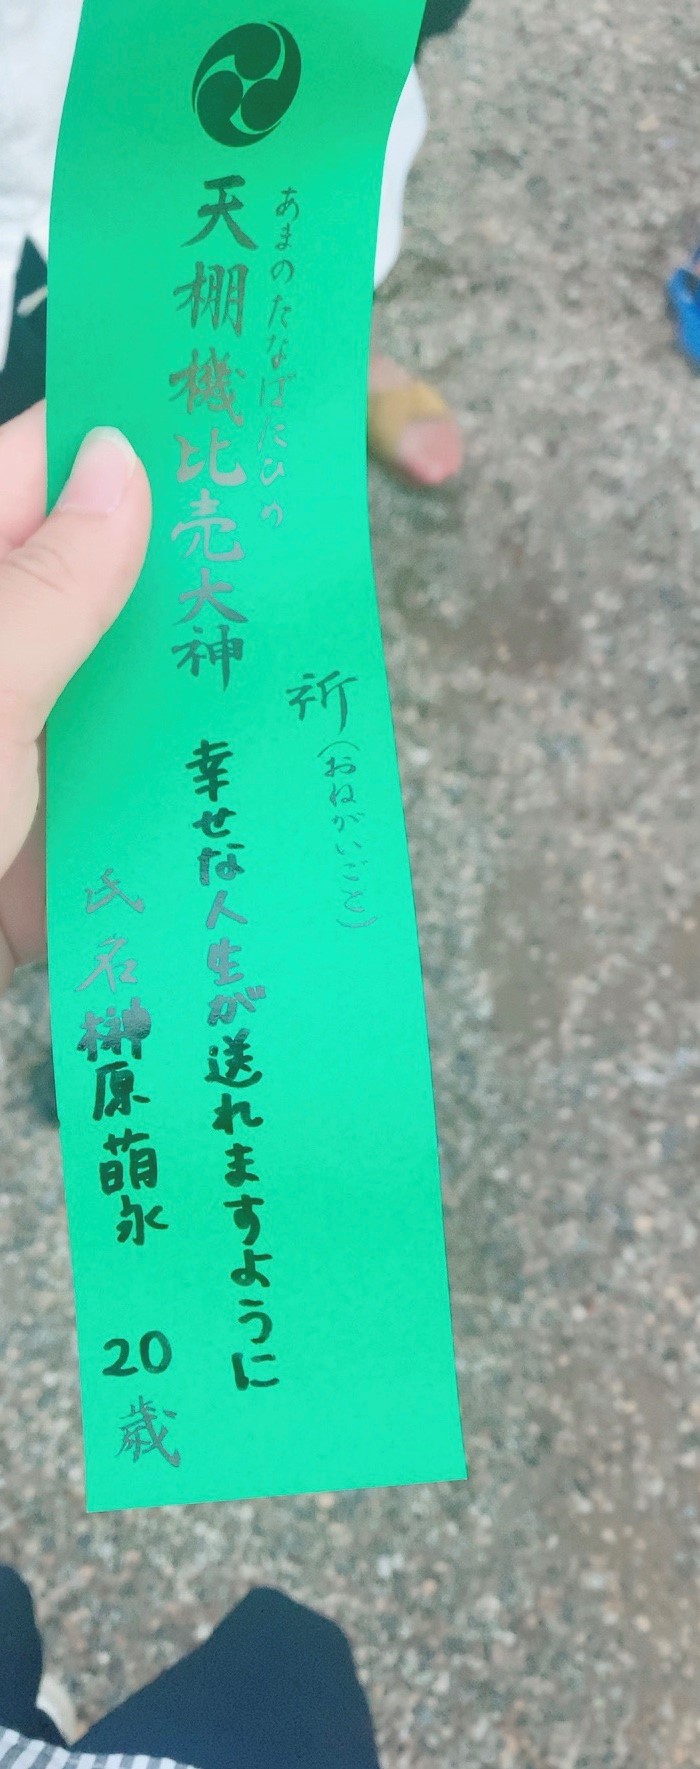 あまのたなばたひめ
天棚機比売大神
祈(おねがいごと)
幸せな人生が送れますように
氏名榊原萌永 20歳